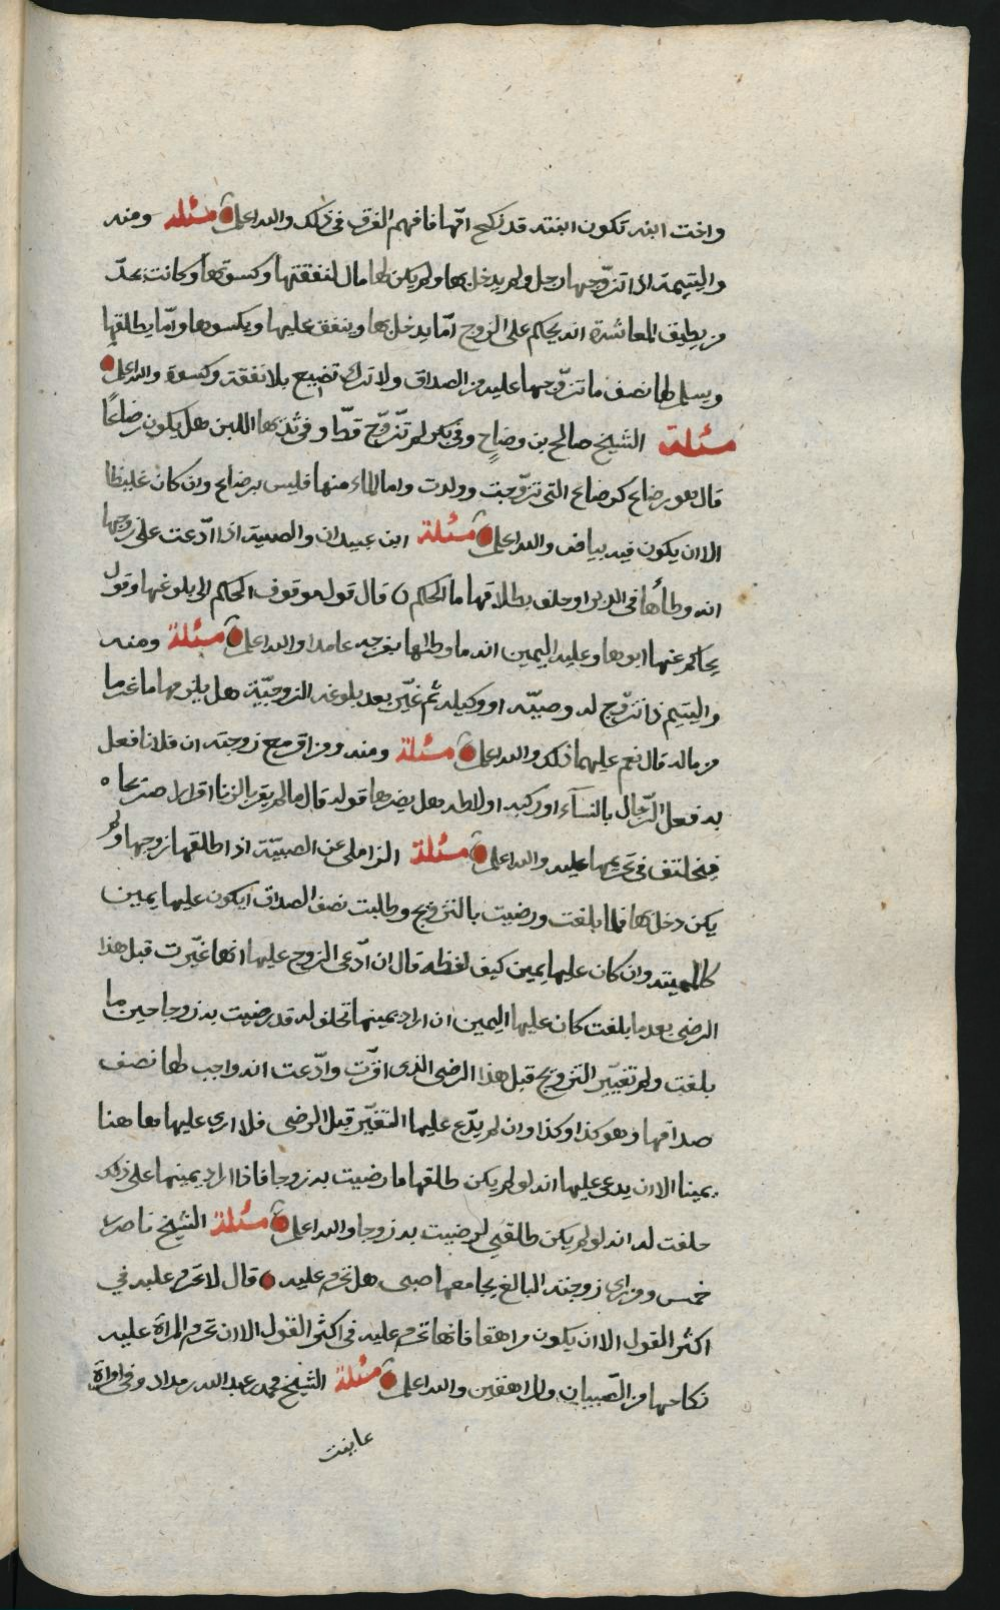 واخت ابنه تكون ابنته قد نكح امّها فافهم الفرق في ذلك والله اعلم مسئلة ومنه
واليتيمة اذا تزوّجها رجل ولم يدخل بها ولم يكن لها مال لنفقتها وكسوتها وكانت بحدّ
من يطيق المعاشرة انه يحكم على الزوج امّا يدخل بها وينفق عليها ويكسوها وامّا يطلقها
ويسلم لها نصف ما تزوّجها عليه من الصداق ولا تترك تضيع بلا نفقة وكسوة والله اعلم
مسئلة الشيخ صالح بن وضاح وفي بكر لم تتزوّج قطّ او في ثديها اللبن هل يكون رضاعًا
قال هو رضاع كرضاع التي تزوّجت وولدت واما الماء منها فليس برضاع وان كان غليظا
الا ان يكون فيه بياض والله اعلم مسئلة ابن عبيدان والصبية اذا ادّعت على زوجها
انه وطأها في الدبر او حلف بطلاقها ما الحكم قال قول موقوف الحكم الى بلوغها وقول
يحاكم عنها ابوها وعليه اليمين انه ما وطئها بفرجه عامدا والله اعلم مسئلة ومنه
واليتيم اذا تزوّج له وصيّه او وكيله ثم غيّر بعد بلوغه الزوجيّة هل يلزمهما ما غرما
من ماله قال نعم عليهما ذلك والله اعلم مسئلة ومنه ومن اقر مع زوجته ان فلانا فعل
به فعل الرّجال بالنسآء او ركبه او لاطه هل يضرها قوله قال ما لم يقر بالزنا اقرارا صريحا
فيختلف في تحريمها عليه والله اعلم مسئلة الزاملي عن الصبيّة اذا طلقها زوجها ولم
يكن دخل بها فلما بلغت ورضيت بالتزويج وطلبت نصف الصداق ايكون عليها يمين
كالمميتة وان كان عليها يمين كيف لفظه قال ان ادّعى الزوج عليها انها غيّرت قبل هذا
الرضى بعد ما بلغت كان عليها اليمين ان اراد يمينها تحلف له قد رضيت به زوجا حين ما
بلغت ولم تغيّر التزويج قبل هذا الرضى الذي اقرّت وادّعت انه واجب لها نصف
صداقها وهو كذا وكذا وان لم يدّع عليها التغيّر قبل الرضى فلا ارى عليها هاهنا
يمينا الا ان يدعي عليها انه لو لم يكن طلقها ما رضيت به زوجا فاذا اراد يمينها على ذلك
حلفت له انه لو لم يكن طلقني لرضيت به زوجا والله اعلم مسئلة الشيخ ناصر بن
خميس ومن راى زوجته البالغ يجامعها صبي هل تحرم عليه قال لا تحرم عليه في
اكثر القول الا ان يكون مراهقا فانها تحرم عليه في اكثر القول الا ان تحرم المراة عليه
نكاحها من الصّبيان والمراهقين والله اعلم مسئلة الشيخ محمد بن عبد الله بن مداد وفي امراة
عاينت